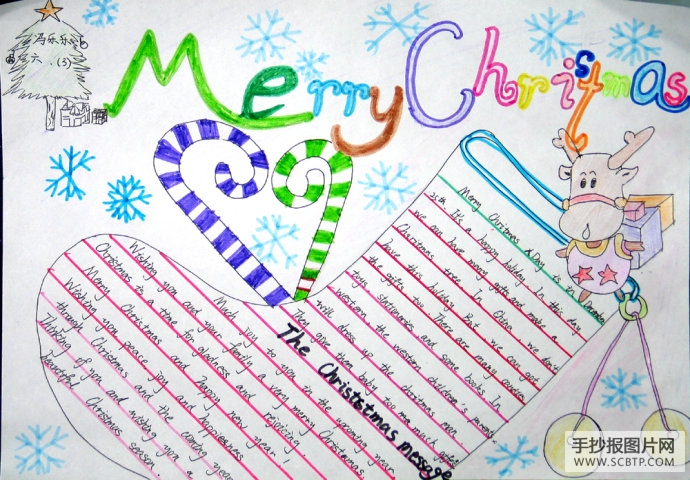 冯乐乐
六.(5)
Merry Christmas
Merry Christmas Day is the December
25th It's a happy holiday In this day,
we can have many gifts and make a
Christmas tree. In China, we don't
have this holiday. But we can got
the gifts too. There are many
toys stationaries and some books. In
western, the western children's parents
will dress up the christmas man
They give them baby too much gifts
The Christstmas message
Much joy to you in the upcoming year.
Wishing you and your family a very merry Christmas,
Christmas is a time for gladness and rejoicing.
Merry Christmas and Happy new year!
Wishing you peace joy and happiness
through Christmas and the coming year
Thinking of you and wishing you a
beautiful Christmas season.
手抄报图片网
WWW.SCBTP.COM